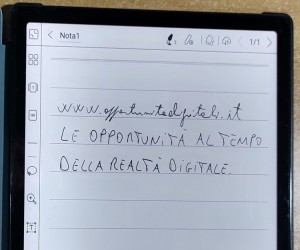 Nota1
1/1
www.opportunitadigitali.it
LE OPPORTUNITÀ AL TEMPO
DELLA REALTÀ DIGITALE.